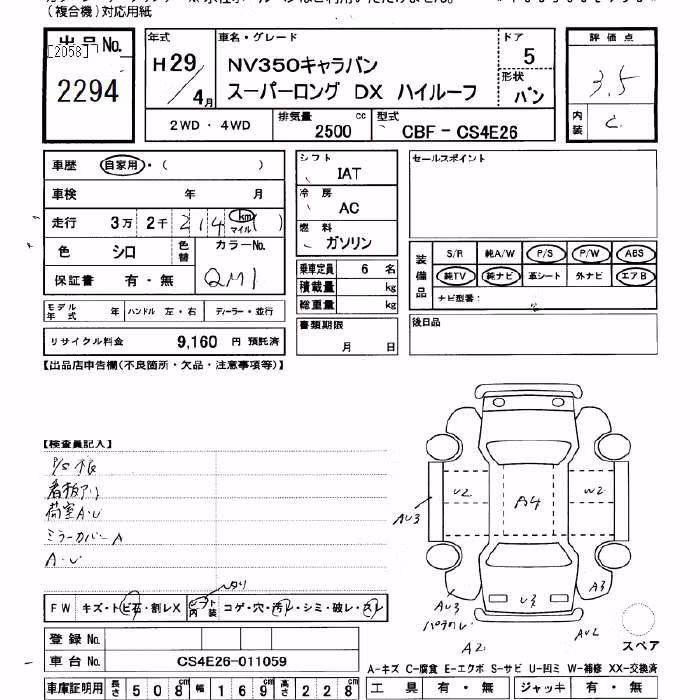 (複合機)対応用紙
出品No.
[2058]
2294
年式
H29/4月
車名・グレード
NV350キャラバン
スーパーロング DX ハイルーフ
ドア
5
形状
バン
評価点
3.5
内装
C
2WD・4WD
排気量
2500 cc
型式
CBF - CS4E26
車歴 自家用・( )
車検 年 月
走行 3万 2千 214 km マイル ( )
色 シロ 色替 カラーNo.
QM1
保証書 有・無
モデル年式 年 ハンドル 左・右 ディーラー・並行
リサイクル料金 9,160 円 預託済
シフト
IAT
冷房
AC
燃料
ガソリン
乗車定員 6 名
積載量 kg
総重量 kg
書類期限
月 日
セールスポイント
装備品
S/R 純A/W P/S P/W ABS
純TV 純ナビ 革シート 外ナビ エアB
ナビ型番:
後日品
【出品店申告欄(不良箇所・欠品・注意事項等)】
【検査員記入】
P/S不良
看板アリ
荷室A・U
ミラーカバーA
A・U
FW キズ・トビ石・割レX
内装 コゲ・穴・汚レ・シミ・破レ・スレ
登録No.
車台No. CS4E26-011059
車庫証明用 長さ 508cm 幅 169cm 高さ 228cm
U2
A4
W2
AU3
AU3
U3
A3
A2
AU2
スペア
A-キズ C-腐食 E-エクボ S-サビ U-凹ミ W-補修 XX-交換済
工具 有・無 ジャッキ 有・無